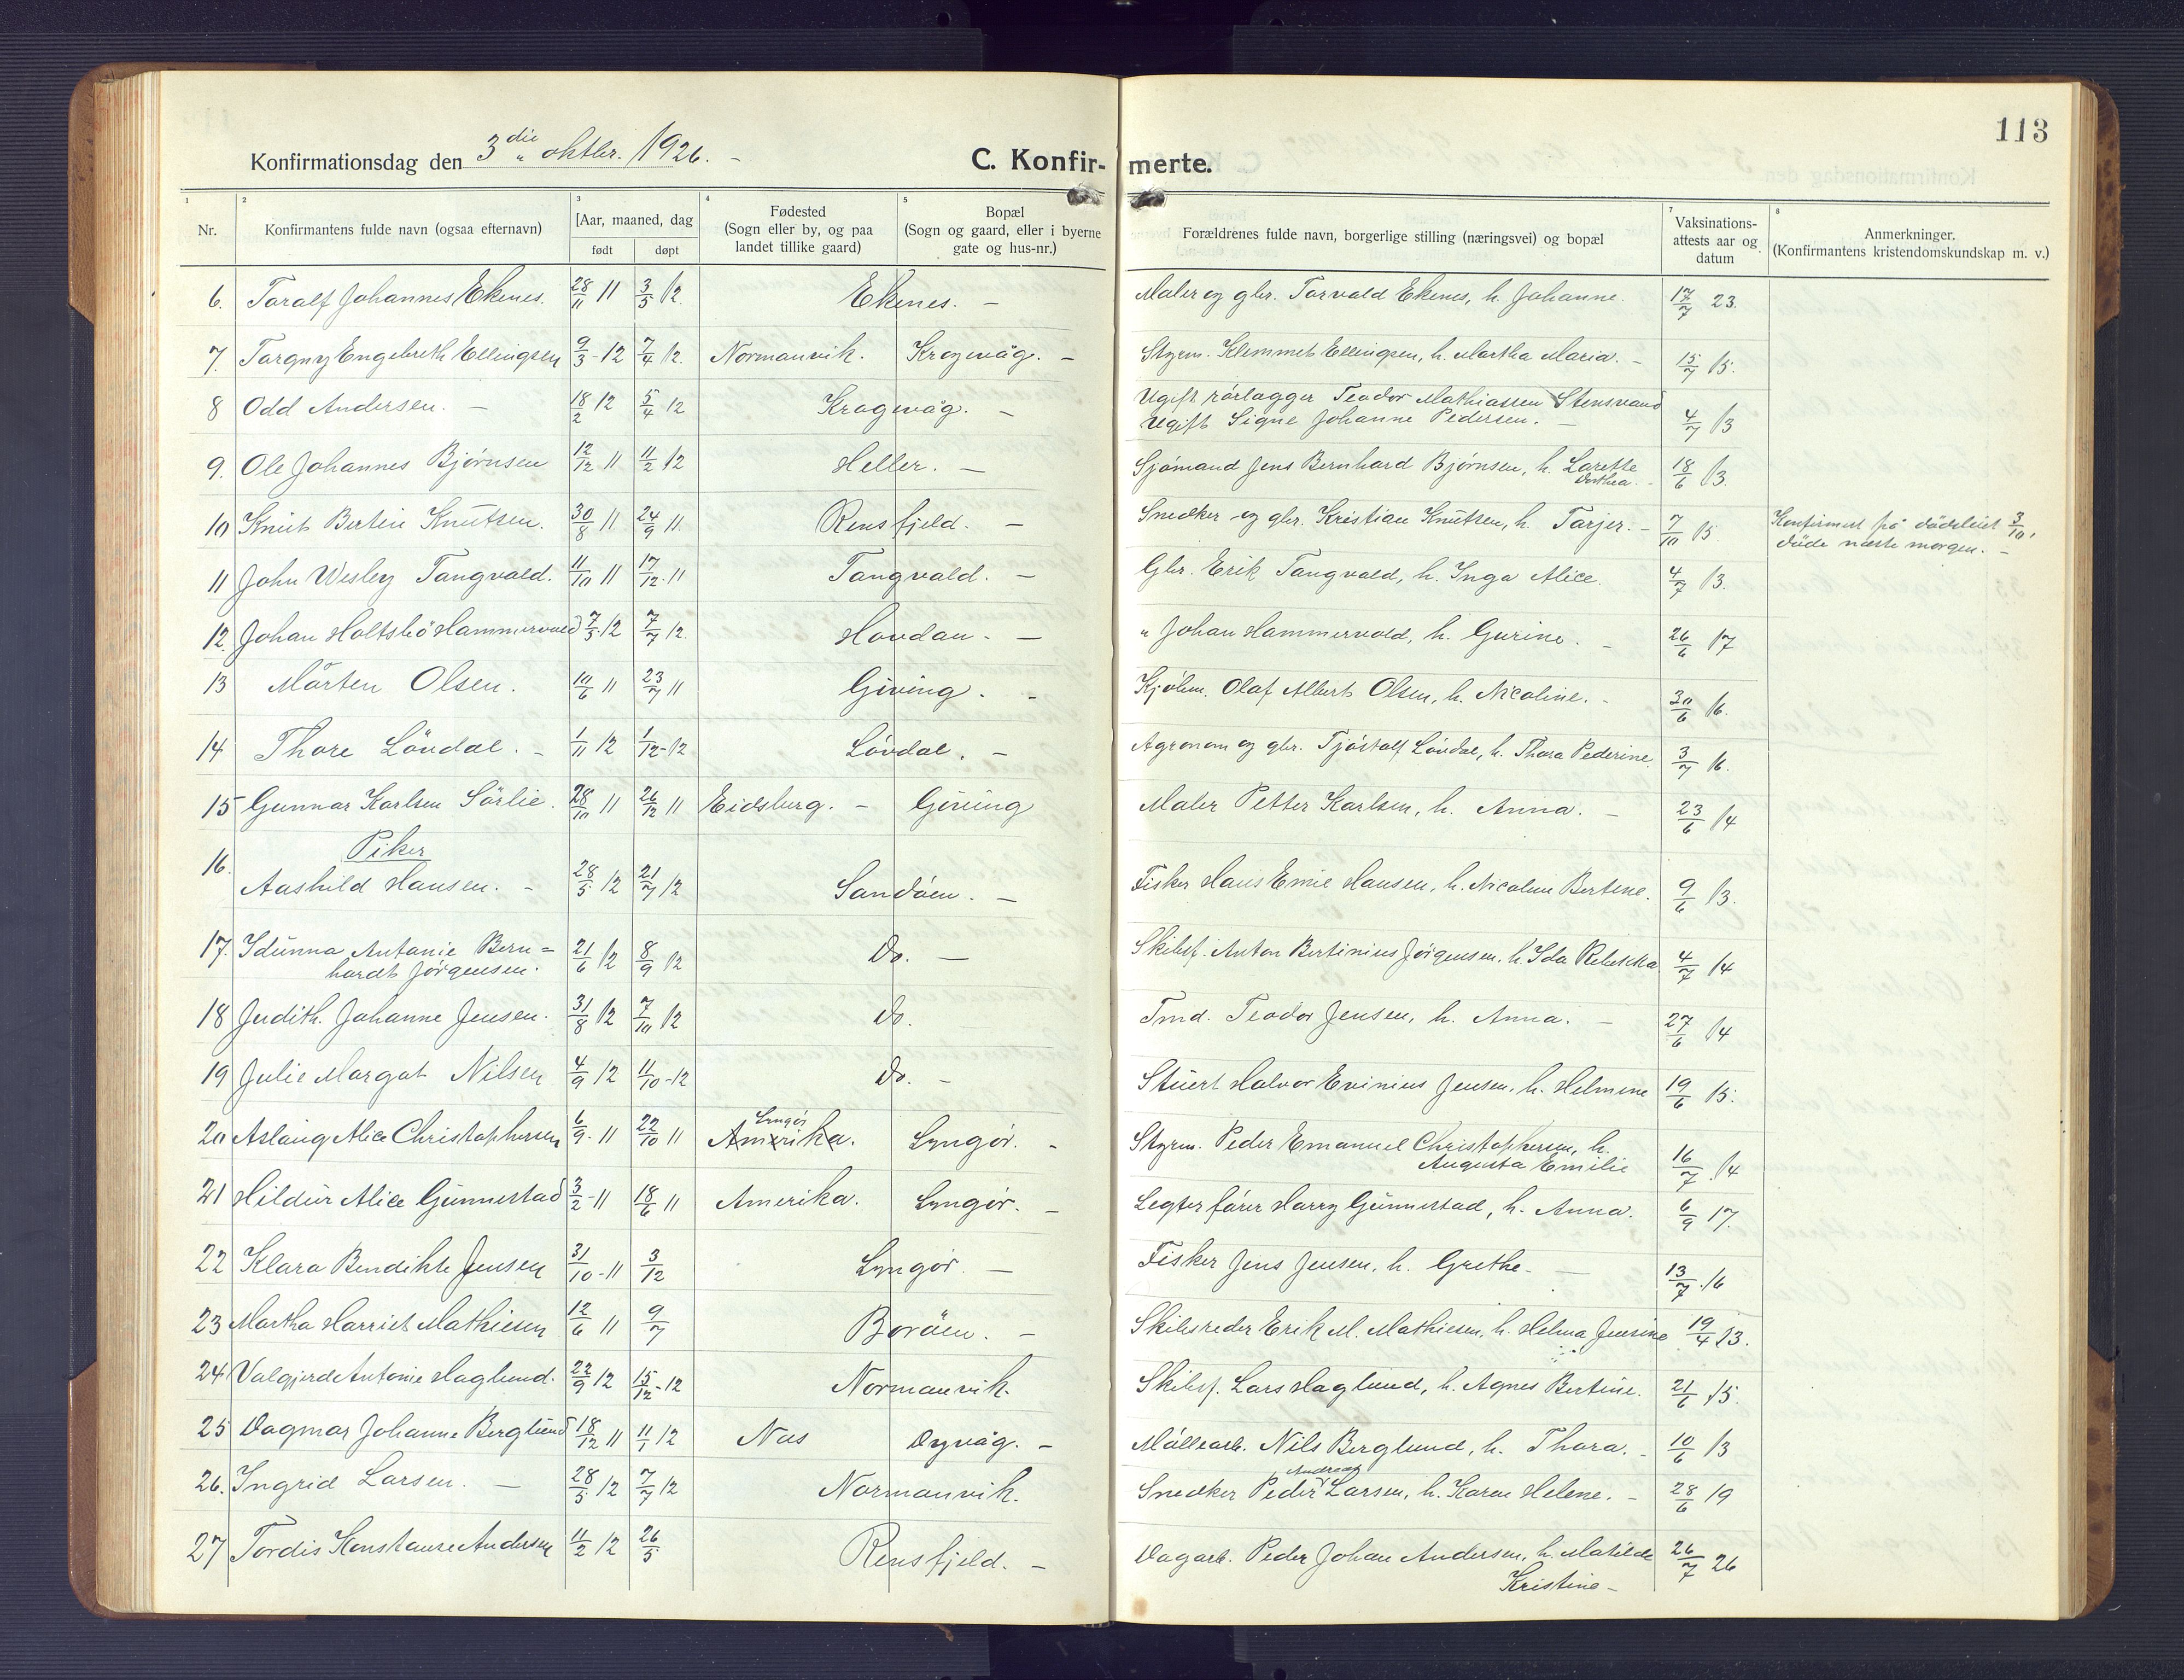 113
Konfirmationsdag den 3die oktbr. 1926. -
C. Konfir- merte.
1 2 3 4 5 7 8
Nr. Konfirmantens fulde navn (ogsaa efternavn) [Aar, maaned, dag født døpt Fødested (Sogn eller by, og paa landet tillike gaard) Bopæl (Sogn og gaard, eller i byerne gate og hus-nr.) Forældrenes fulde navn, borgerlige stilling (næringsvei) og bopæl Vaksinations-attests aar og datum Anmerkninger. (Konfirmantens kristendomskundskap m. v.)
6. Toralf Johannes Ekenes. 28/11 11 3/5 12. Ekenes. - Maler og gbr. Torvald Ekenes, h. Johanne. 17/7 23.
7. Torgny Engebreth Ellingsen 9/3-12 7/4 12. Normanvik. Krogevåg. - Styrm. Klemmet Ellingsen, h. Martha Maria. - 15/7 15.
8 Odd Andersen. - 18/2 12 5/4 12 Krogevåg. - Ugift rörlægger Teodor Mathiassen Stensvand
Ugift Signe Johanne Pedersen. - 4/7 13
9. Ole Johannes Bjørnsen 12/12 11 11/2 12 Heller. - Sjömand Jens Bernhard Bjørnsen, h. Lorette
Dorthea. - 18/6 13.
10 Knut Bertin Knutsen. 30/8 11 24/9 11. Rensfjeld. - Snedker og gbr. Kristian Knutsen, h. Tarjer. - 7/10 15. Konfirmert på dödsleiet 3/10,
döde næste morgen. -
11 John Wesley Tangvald. 11/10 11 17/12. 11 Tangvald. - Gbr. Erik Tangvald, h. Inga Alice. 4/7 13.
12. Johan Holtskö Hammervold 7/5-12 7/7 12. Hovdan. - " Johan Hammervold, h. Gurine. - 26/6 17
13 Mårten Olsen. 10/6 11 23/7 11 Giving. - Kjölm. Olaf Albert Olsen, h. Nicoline. - 30/6 16.
14 Thore Lövdal. - 1/11 12 1/12-12 Lövdal. - Agronom og gbr. Tjöstolf Lövdal, h. Thora Pederine. 3/7 16.
15 Gunnar Karlsen Sörlie. 28/10 11 26/12 11 Eidsburg. - Giving Maler Petter Karlsen, h. Anna. - 23/6 14
Piker
16. Aashild Hansen. - 28/5 12 21/7 12 Sandöen. - Fisker Hans Emie Hansen, h. Nicoline Bertine. 9/6 13.
17. Idunna Antonie Bern=
hardt Jörgensen. 21/6 12 8/9 12 Do. - Skibsf. Anton Bertinius Jörgensen. h. Ida Rebekka 4/7 14
18 Judith. Johanne Jensen. 31/8 12 7/10 12 Do. Tmd. Teodor Jensen, h. Anna. - 27/6 14
19 Julie Margot Nilsen 4/9 12 11/10-12 Do. - Stuert Halvor Evinius Jensen, h. Helmine 19/6 15.
20 Aslaug Alice Christophersen 6/9. 11 22/10 11 Lyngör
Amerika. Lyngör. - Styrm. Peder Emanuel Christophersen, h.
Augusta Emilie 16/7. 14
21 Hildur Alice Gunnestad 3/2-11 18/6 11 Amerika. Lyngör. - Legter förer Harry Gunnestad, h. Anna. 6/9 17.
22 Klara Bendikte Jensen 31/10-11 3/12 Lyngör. - Fisker Jens Jensen, h. Grethe. - 13/7. 16
23 Martha Harriet Mathiesen 12/6 11 9/7 Boröen. - Skibsreder Erik M. Mathiesen, h. Helma Jensine 19/4 13.
24 Valgjerd Antonie Haglund. 22/9 12 15/12-12 Normanvik. Skibsf. Lars Haglund, h. Agnes Bertine. 21/6 15.
25 Dagmar Johanne Berglund 18/12 11 11/1 12 Nes Dyvåg. - Möllearb. Nils Berglund, h. Thora. - 10/6 13
26. Ingrid Larsen. - 28/5 12 7/7 12 Normanvik. Snedker Peder Andreas Larsen, h. Karen Helene. - 28/6 19
27 Tordis Konstanse Andersen 11/2 12 26/5 Rensfjeld. - Dagarb. Peder Johan Andersen, h. Matilde
Kristine - 26/7 26